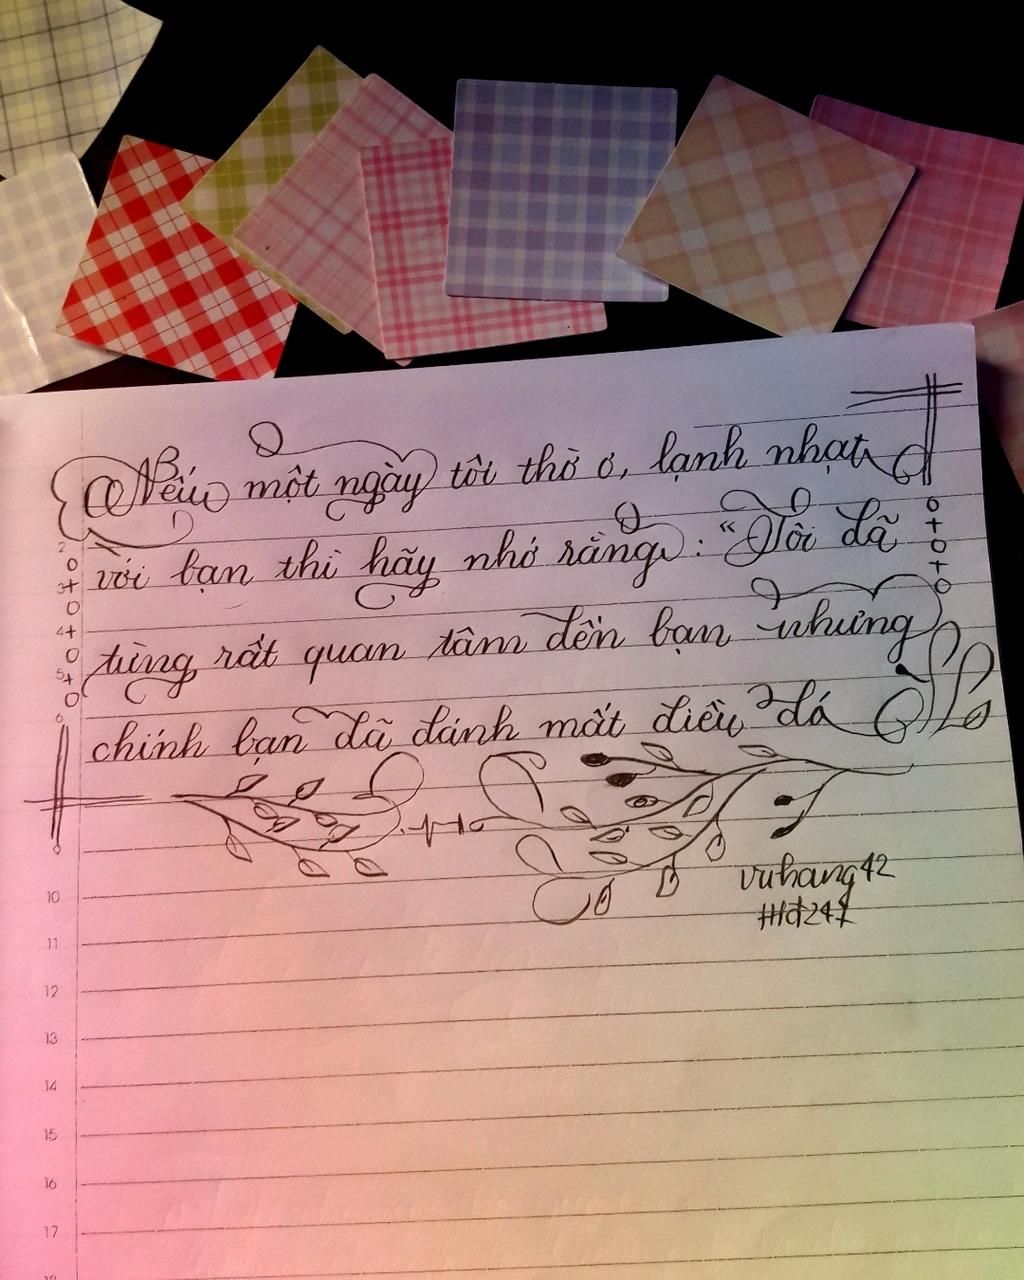 Nếu một ngày tôi thờ ơ, lạnh nhạt
với bạn thì hãy nhớ rằng: "Tôi đã
từng rất quan tâm đến bạn nhưng
chính bạn đã đánh mất điều đó
vuhang42
2
3
4
5
6
10
11
12
13
14
15
16
17